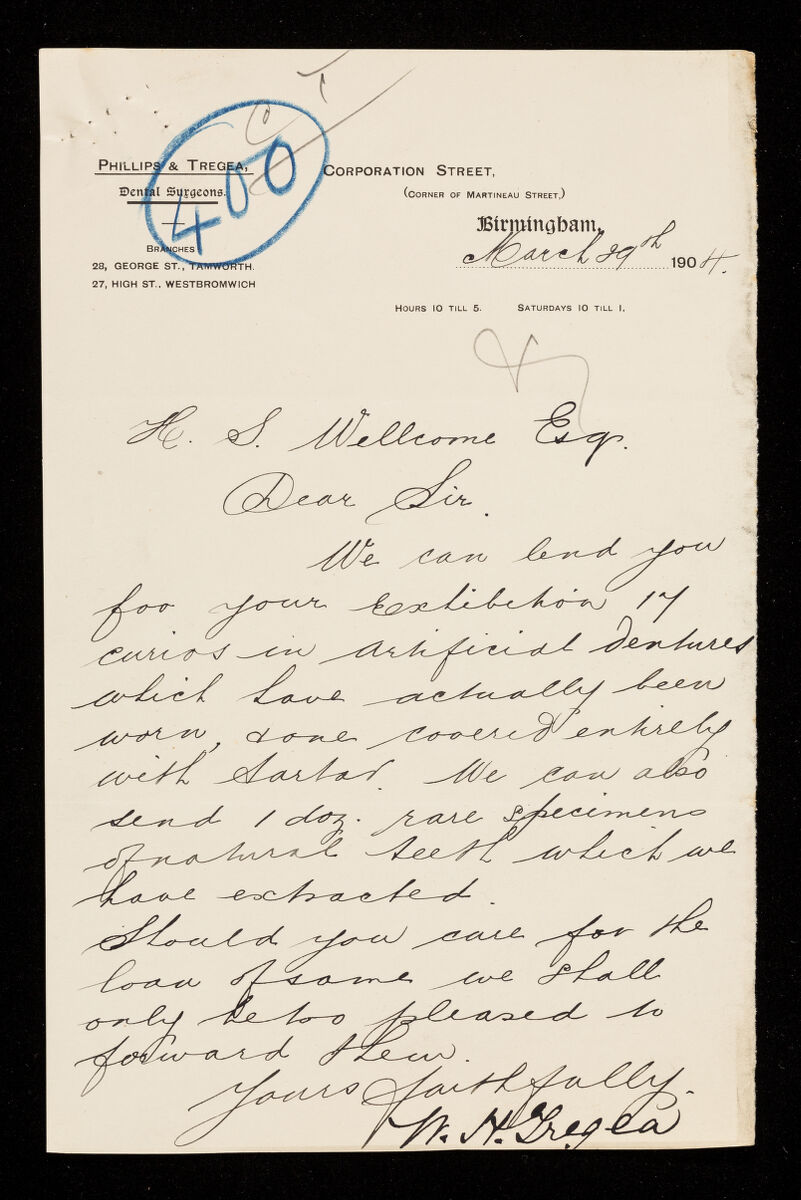 400
PHILLIPS & TREGEA,
Dental Surgeons.
BRANCHES
28, GEORGE ST., TAMWORTH.
27, HIGH ST., WESTBROMWICH
CORPORATION STREET,
(CORNER OF MARTINEAU STREET.)
Birmingham,
March 29th 1904.
HOURS 10 TILL 5. SATURDAYS 10 TILL 1.
H. S. Wellcome Esq.
Dear Sir.
We can lend you
for your Exhibition 17
curios in Artificial Dentures
which have actually been
worn, & one covered entirely
with tartar. We can also
send 1 doz. rare specimens
of natural teeth which we
have extracted.
Should you care for the
loan of same we shall
only be too pleased to
forward them.
Yours faithfully.
W. H. Tregea